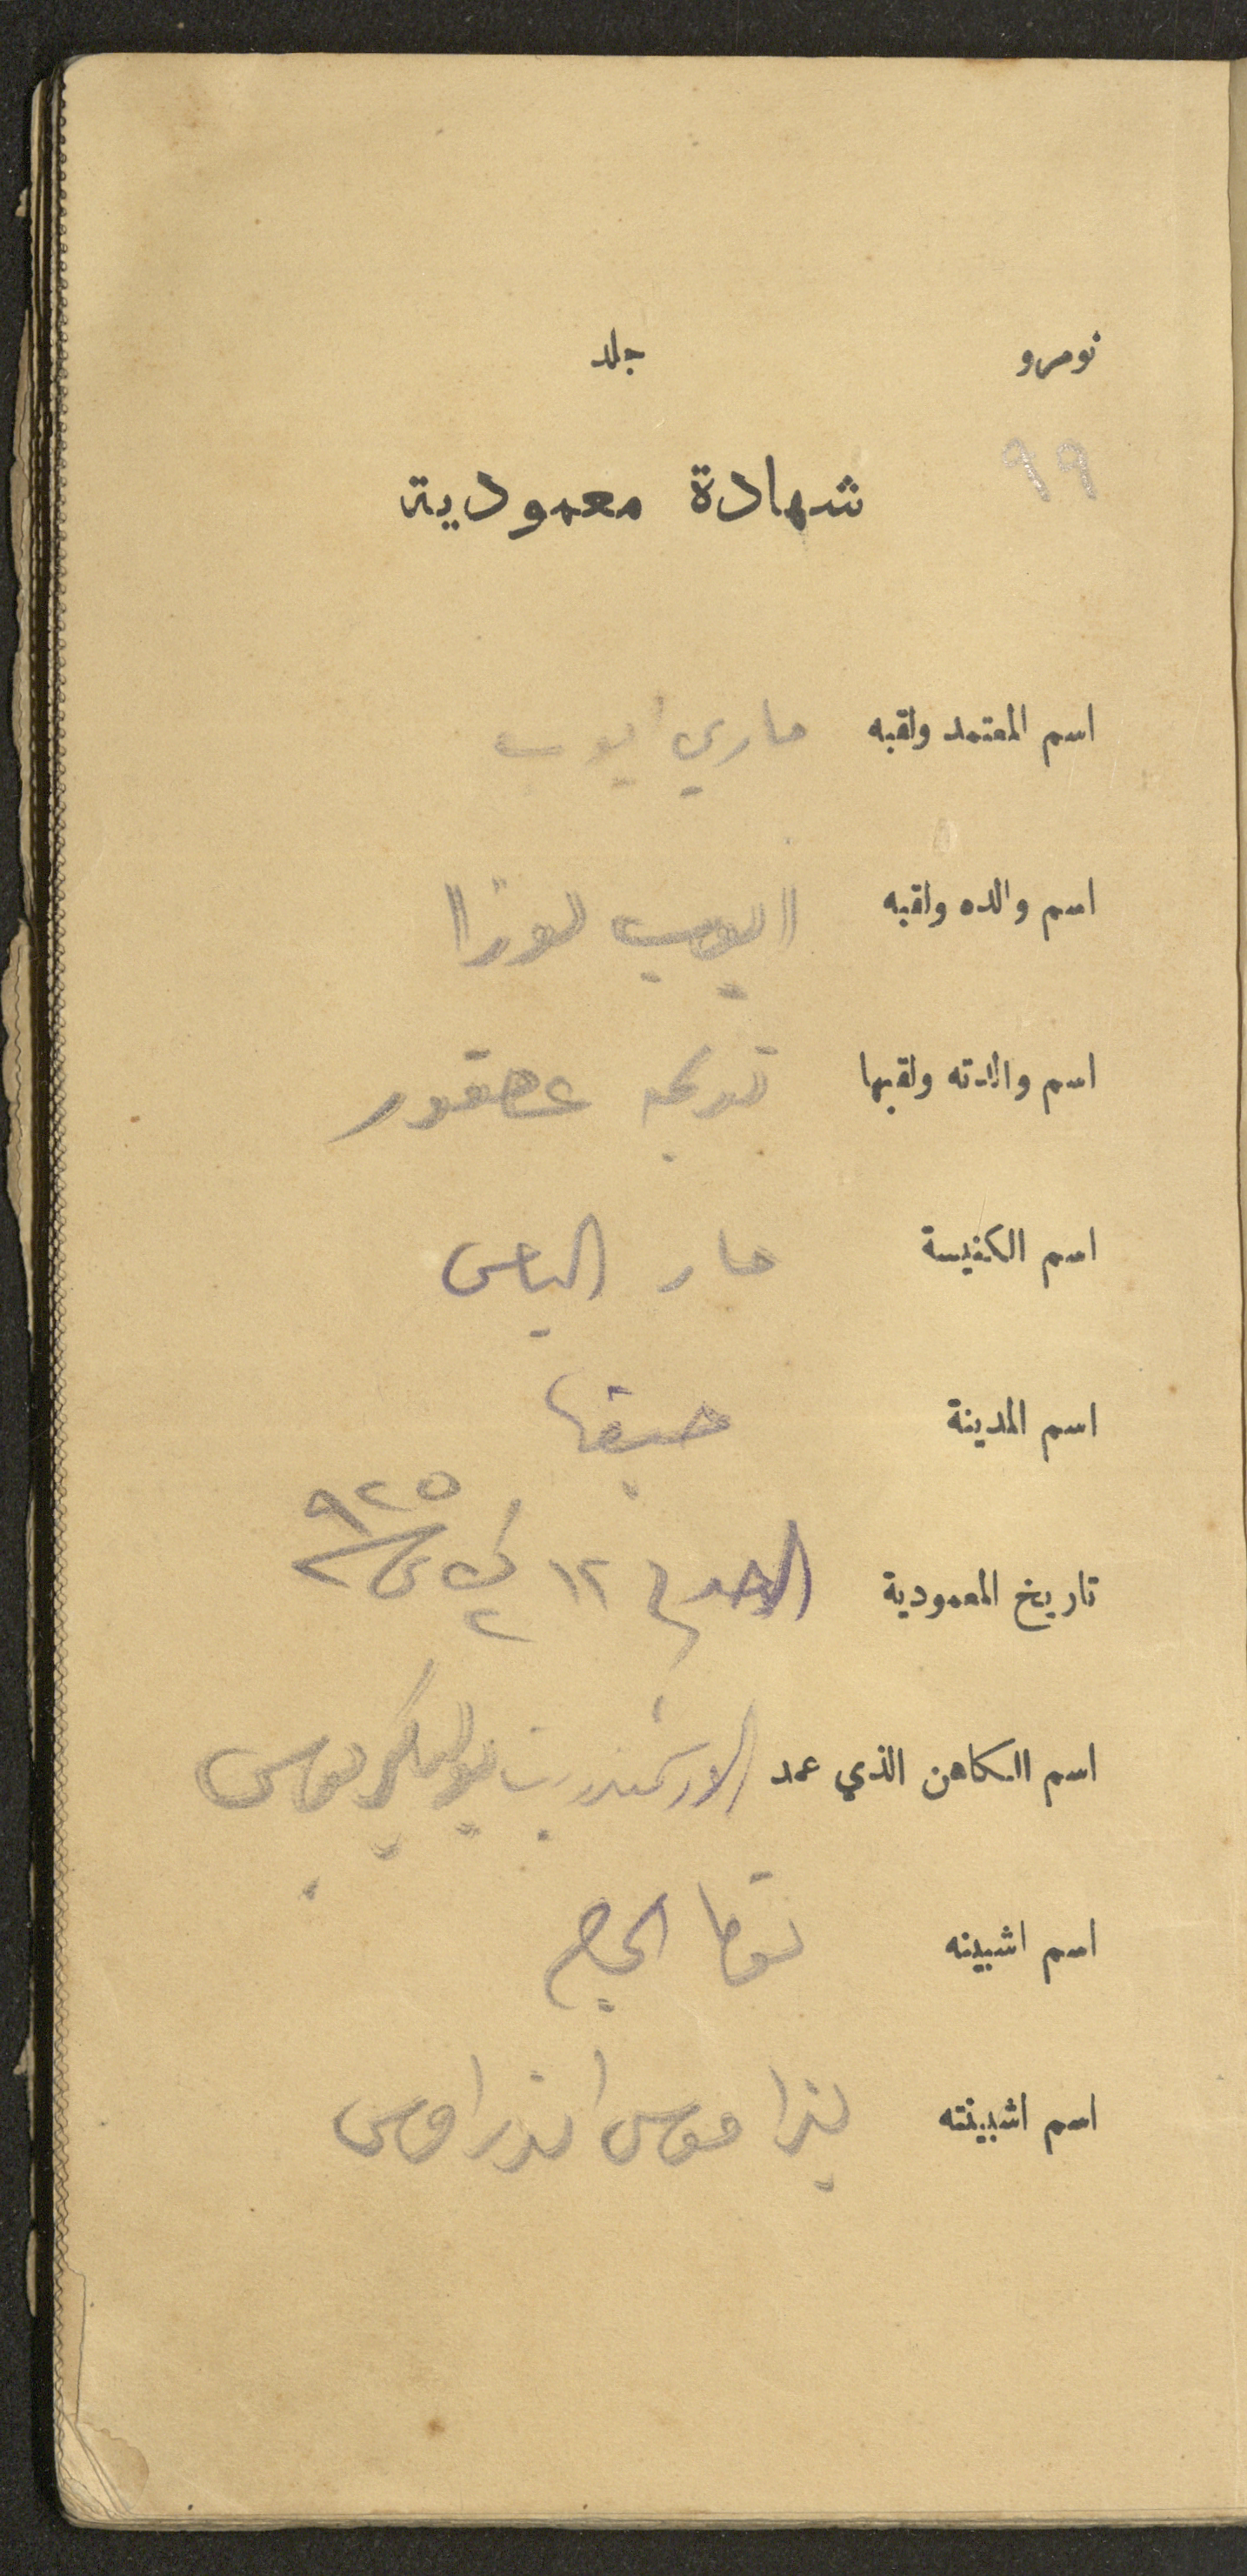 نومرو جلد
٩٩
شهادة معمودية
اسم المعتمد ولقبه ماري ايوب
اسم والده ولقبه ايوب
اسم والدته ولقبها
اسم الكنيسة مار الياس
اسم المدينة حيفا
تاريخ المعمودية الاحد في ١٢ ك ٢ سنة ٩٢٥
اسم الكاهن الذي عمد الارشمندريت بوليكربوس
اسم اشبينه نقولا الحاج
اسم اشبينته موسى اندراوس